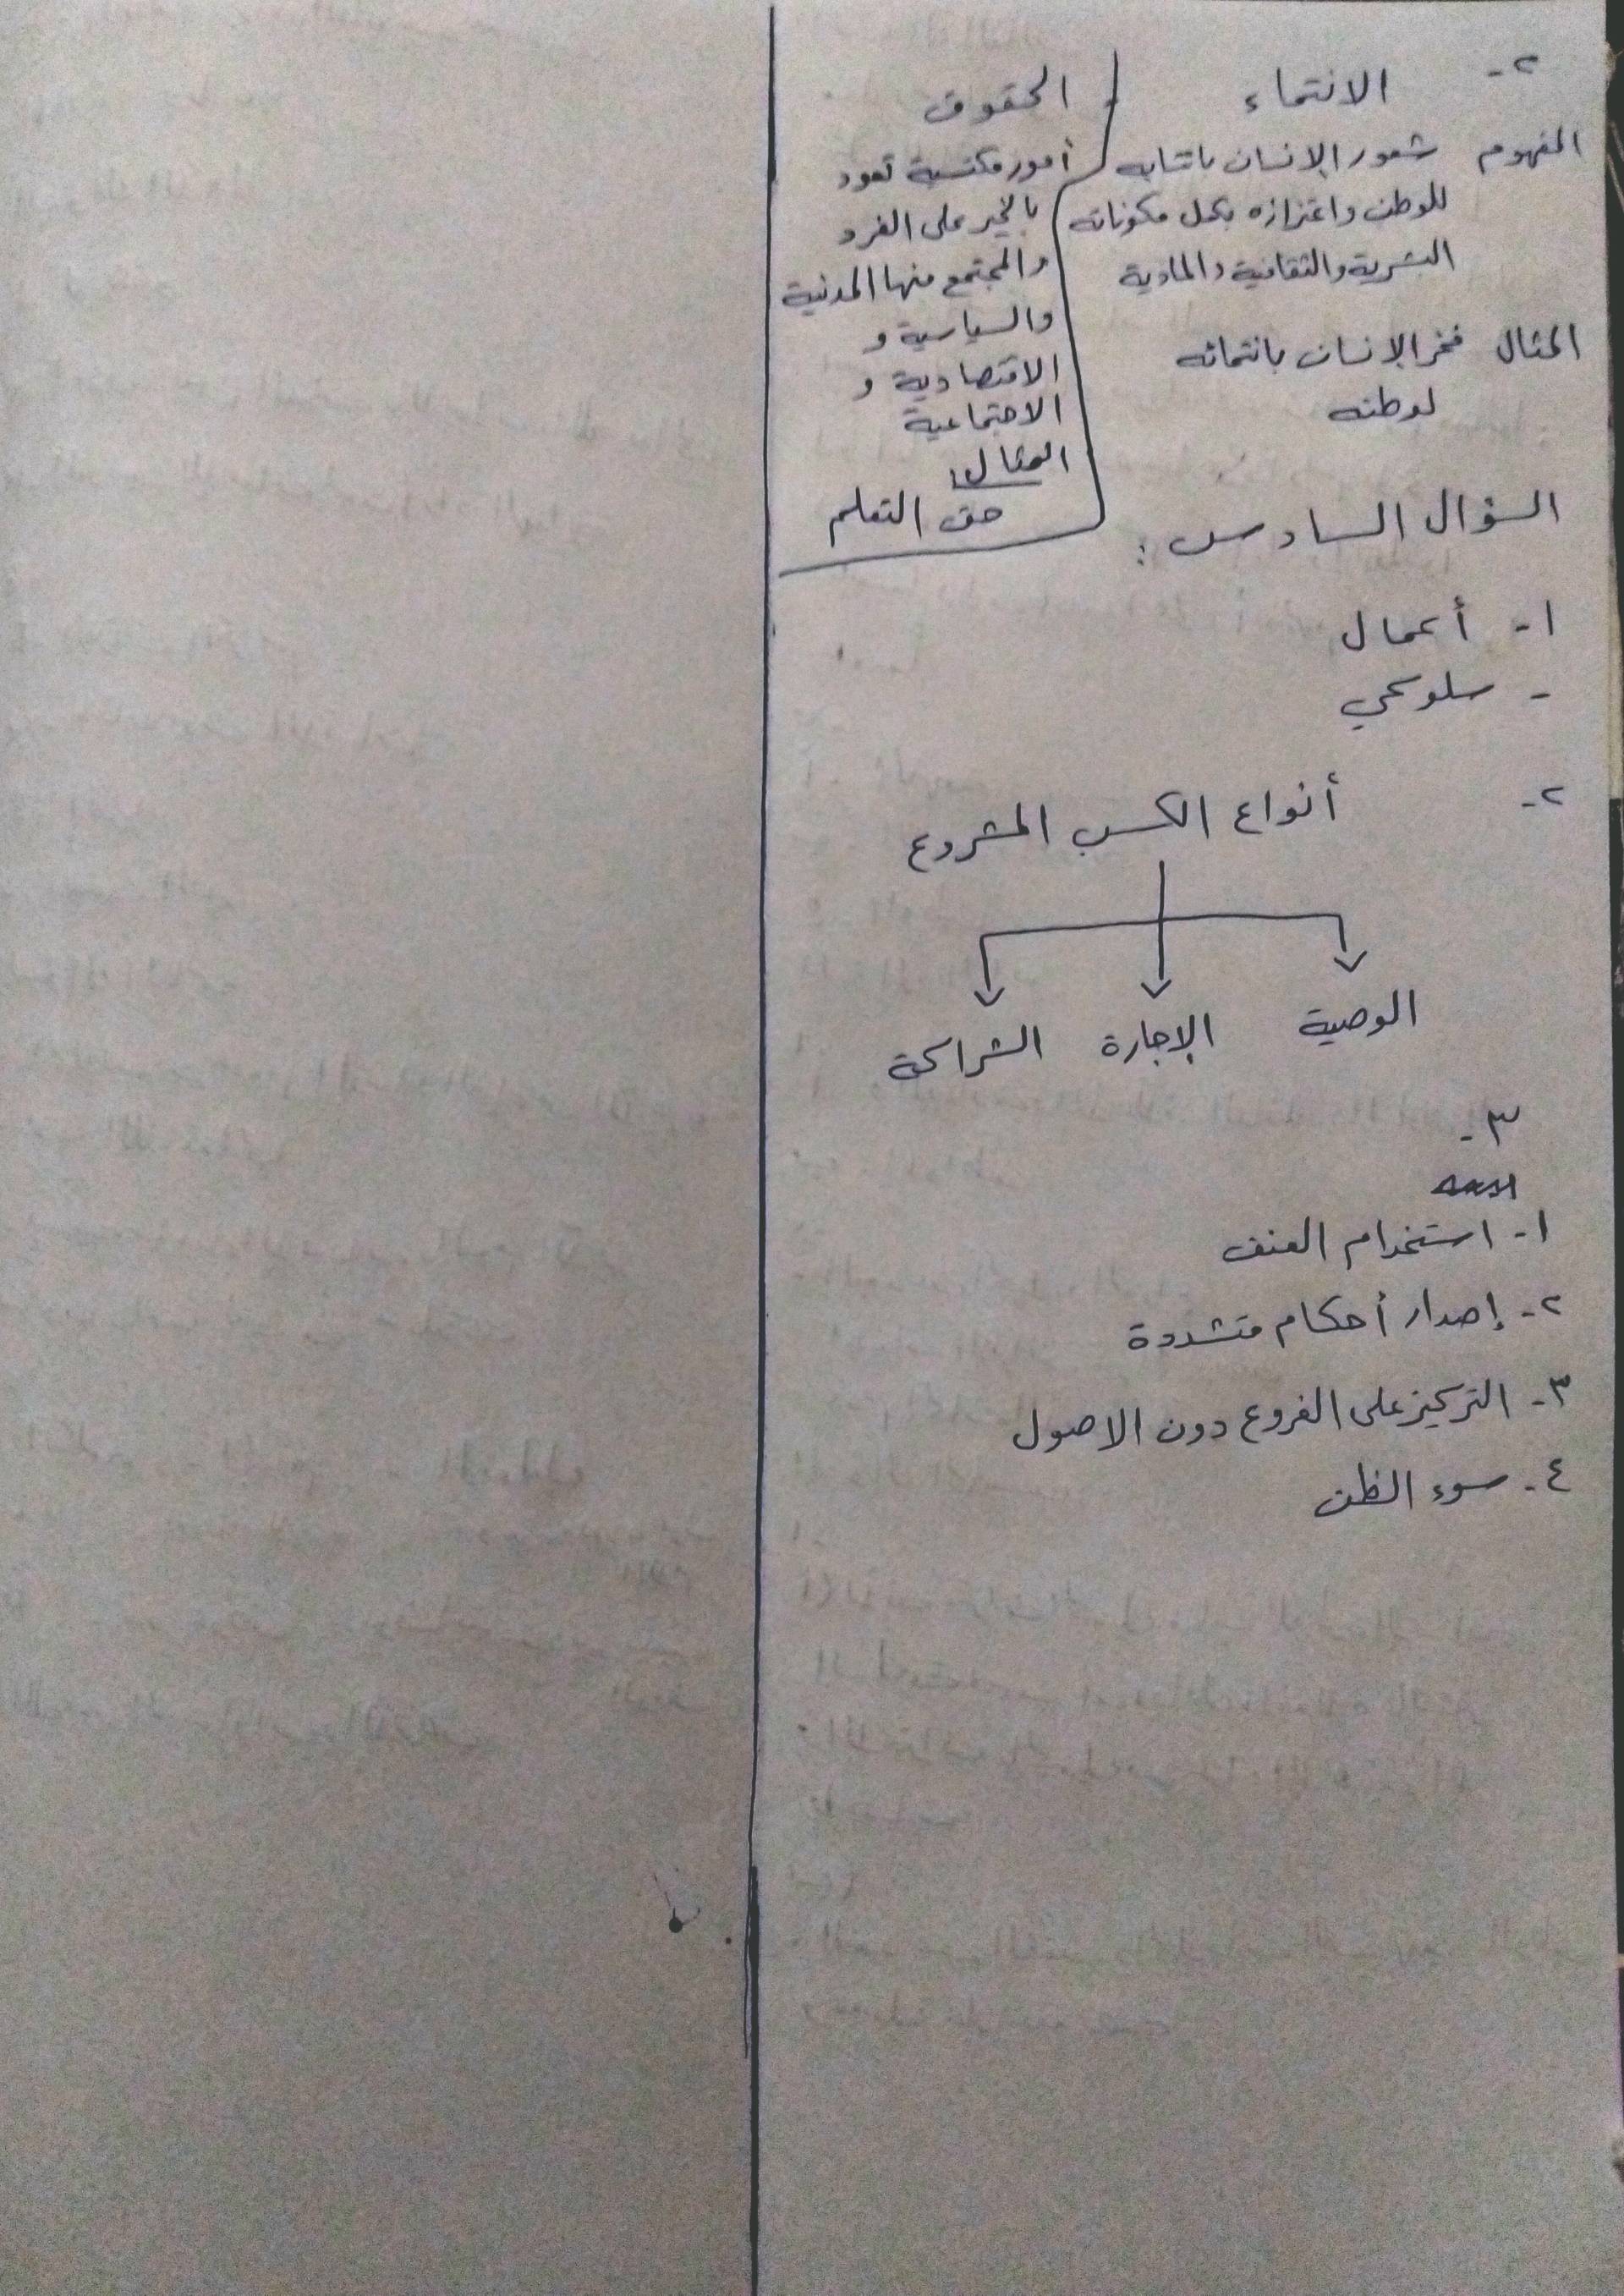 ٢-
الانتماء
المفهوم شعور الإنسان بانتمائه
للوطن واعتزازه بكل مكوناته
البشرية والثقافية والمادية
المثال فخر الإنسان بانتمائه
لوطنه
الحقوق
أمور مكتسبة تعود
بالخير على الفرد
والمجتمع منها المدنية
والسياسية و
الاقتصادية و
الاجتماعية
المثال:
حق التعلم
السؤال السادس:
١- أعمال
- سلوكي
٢- أنواع الكسب المشروع
الوصية الإجارة الشراكة
٣-
١- استخدام العنف
٢- إصدار أحكام متشددة
٣- التركيز على الفروع دون الاصول
٤- سوء الظن